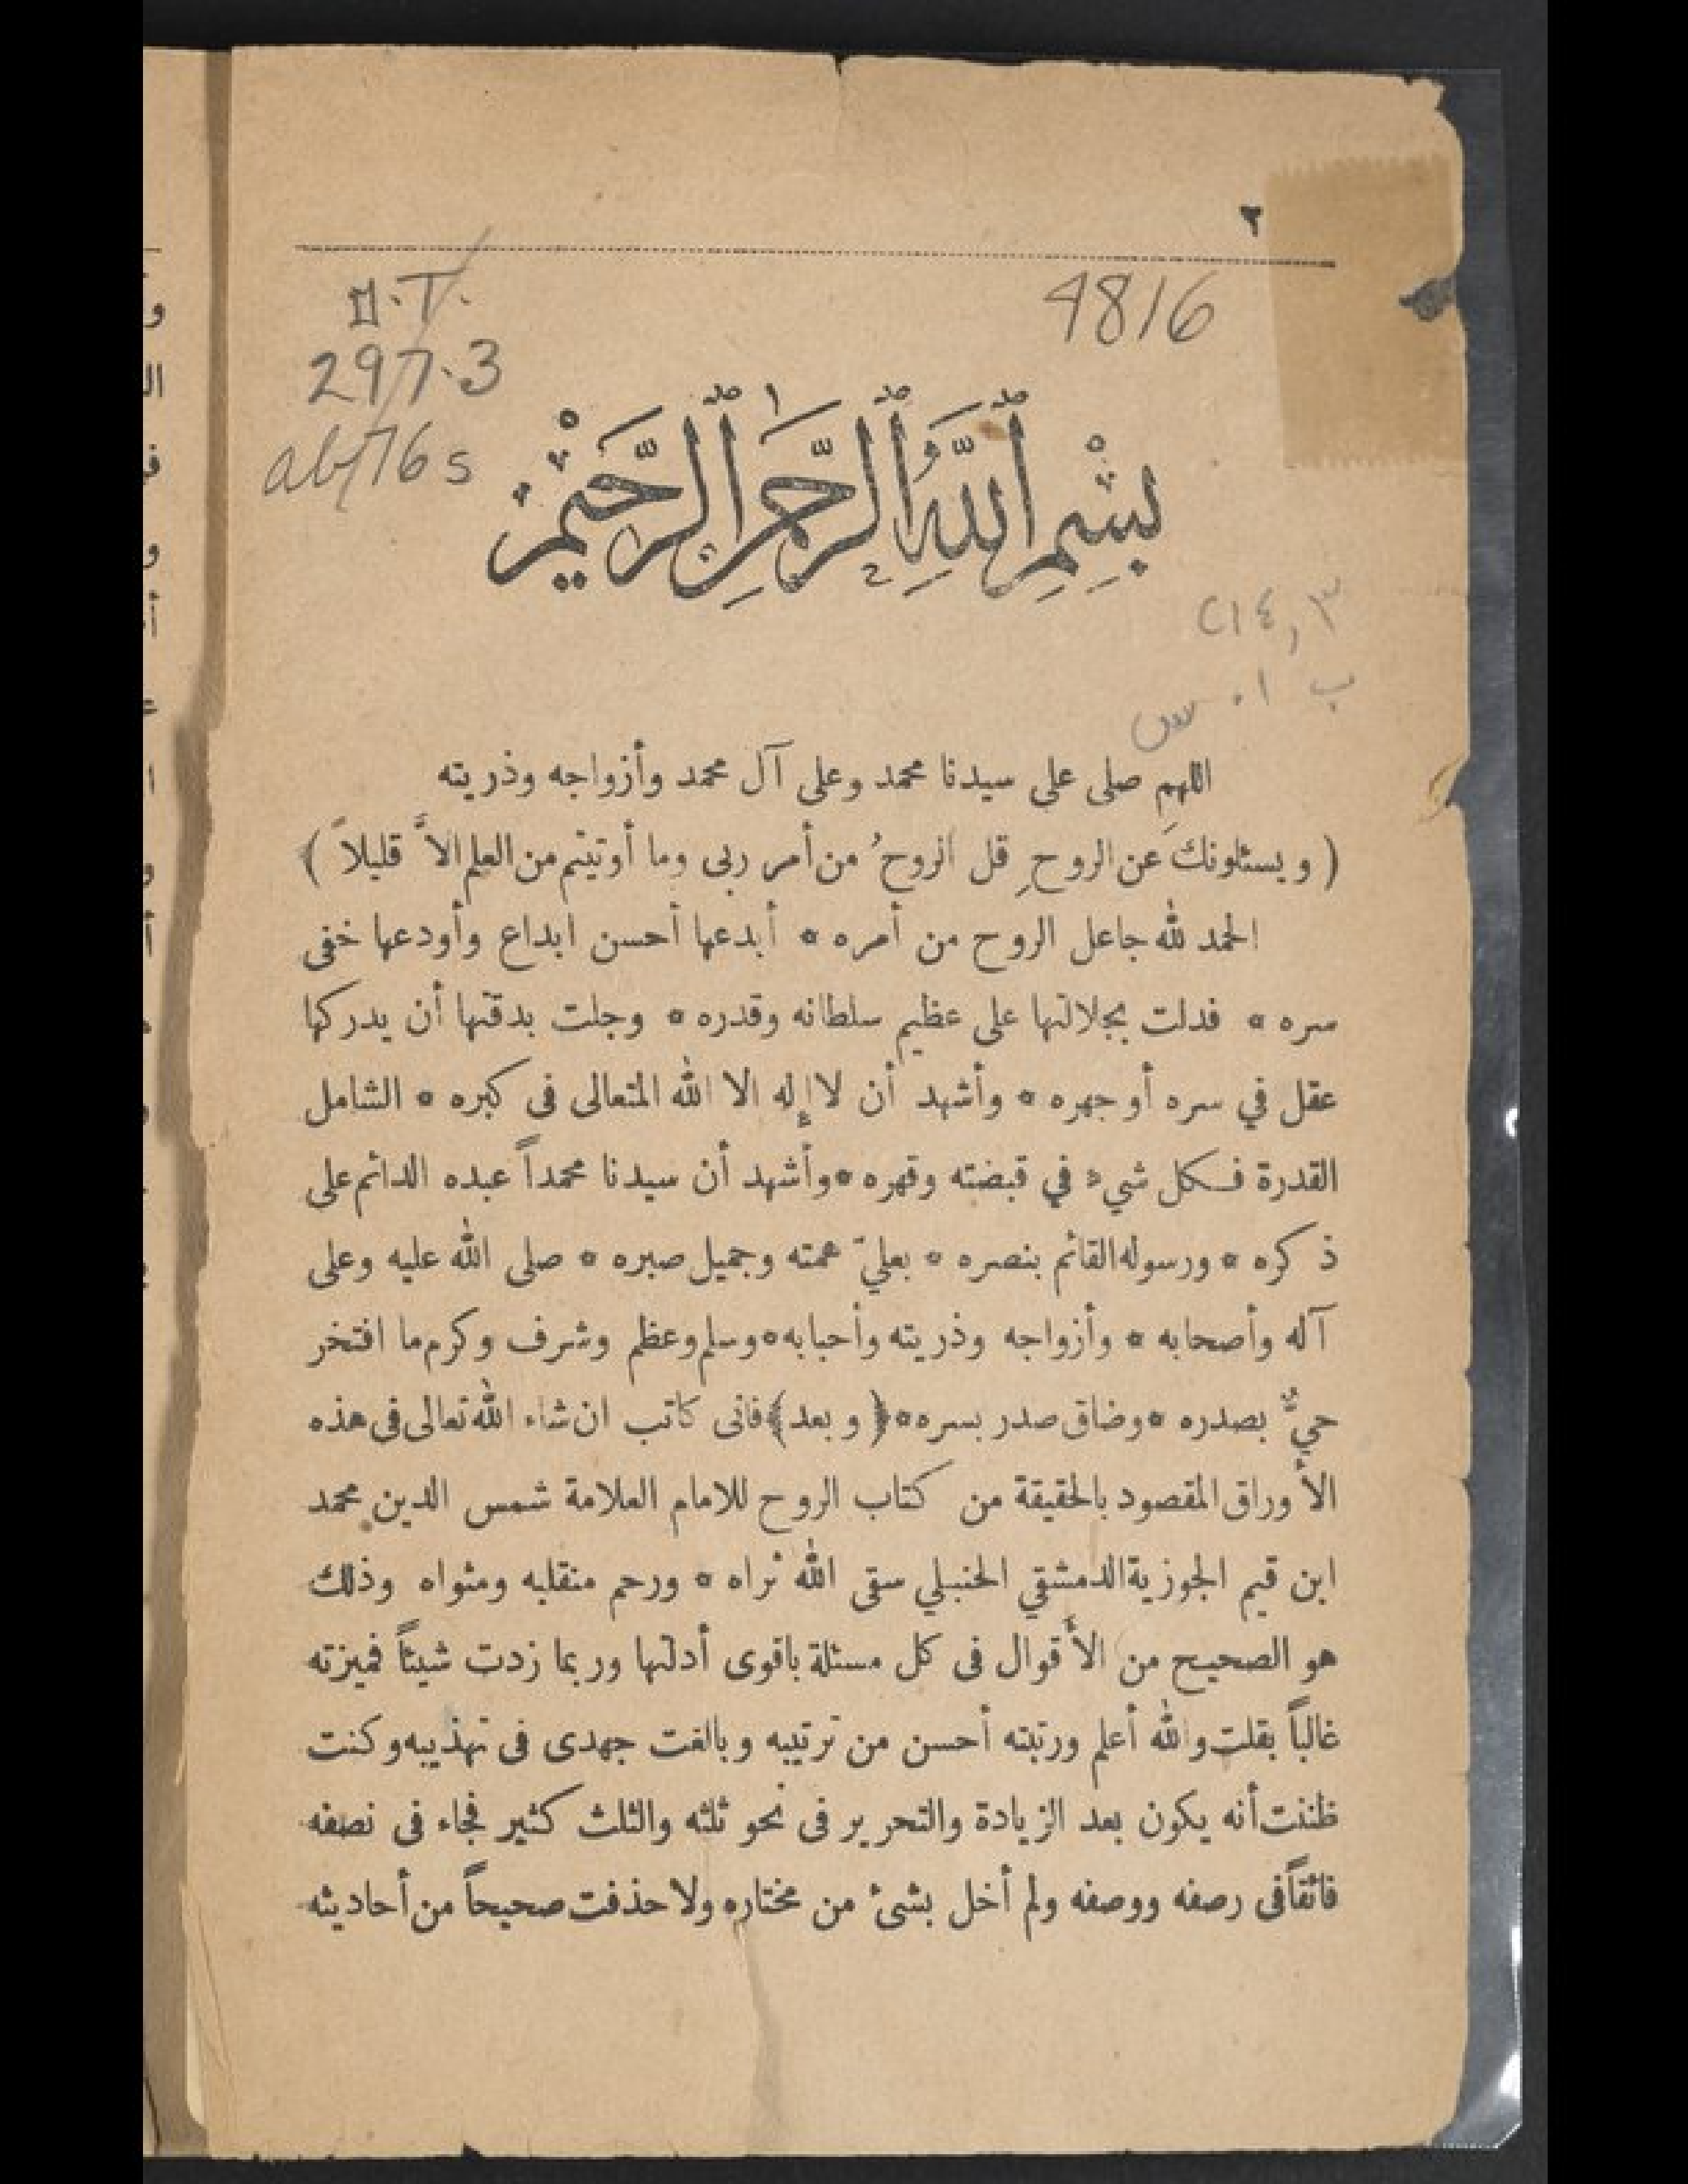 ٢
4816
.T.
297.3
ab76s
بِسْمِ ٱللَّهِ ٱلرَّحْمٰنِ ٱلرَّحِيْمِ
٢١٤,٣
ب ا ٠ س
اللهم صلى على سيدنا محمد وعلى آل محمد وأزواجه وذريته
( ويسئلونك عن الروح قل الروحُ من أمر ربى وما أوتيتم من العلم الاَّ قليلاً )
الحمد لله جاعل الروح من أمره * أبدعها أحسن ابداع وأودعها خفى
سره * فدلت بجلالتها على عظيم سلطانه وقدره * وجلت بدقتها أن يدركها
عقل في سره أو جهره * وأشهد أن لا إله الا الله المتعالى فى كبره * الشامل
القدرة فكل شيء في قبضته وقهره * وأشهد أن سيدنا محمداً عبده الدائم على
ذكره * ورسوله القائم بنصره * بعليّ همته وجميل صبره * صلى الله عليه وعلى
آله وأصحابه * وأزواجه وذريته وأحبابه * وسلم وعظم وشرف وكرم ما افتخر
حيٌّ بصدره * وضاق صدر بسره * ﴿ وبعد ﴾ فانى كاتب ان شاء الله تعالى فى هذه
الأوراق المقصود بالحقيقة من كتاب الروح للامام العلامة شمس الدين محمد
ابن قيم الجوزية الدمشقي الحنبلي سقى الله ثراه * ورحم منقلبه ومثواه وذلك
هو الصحيح من الأقوال فى كل مسئلة باقوى أدلتها وربما زدت شيئاً فميزته
غالباً بقلت والله أعلم ورتبته أحسن من ترتيبه وبالغت جهدى فى تهذيبه وكنت
ظننت أنه يكون بعد الزيادة والتحرير فى نحو ثلثه والثلث كثير فجاء فى نصفه
فائقاً فى رصفه ووصفه ولم أخل بشئ من مختاره ولا حذفت صحيحاً من أحاديثه